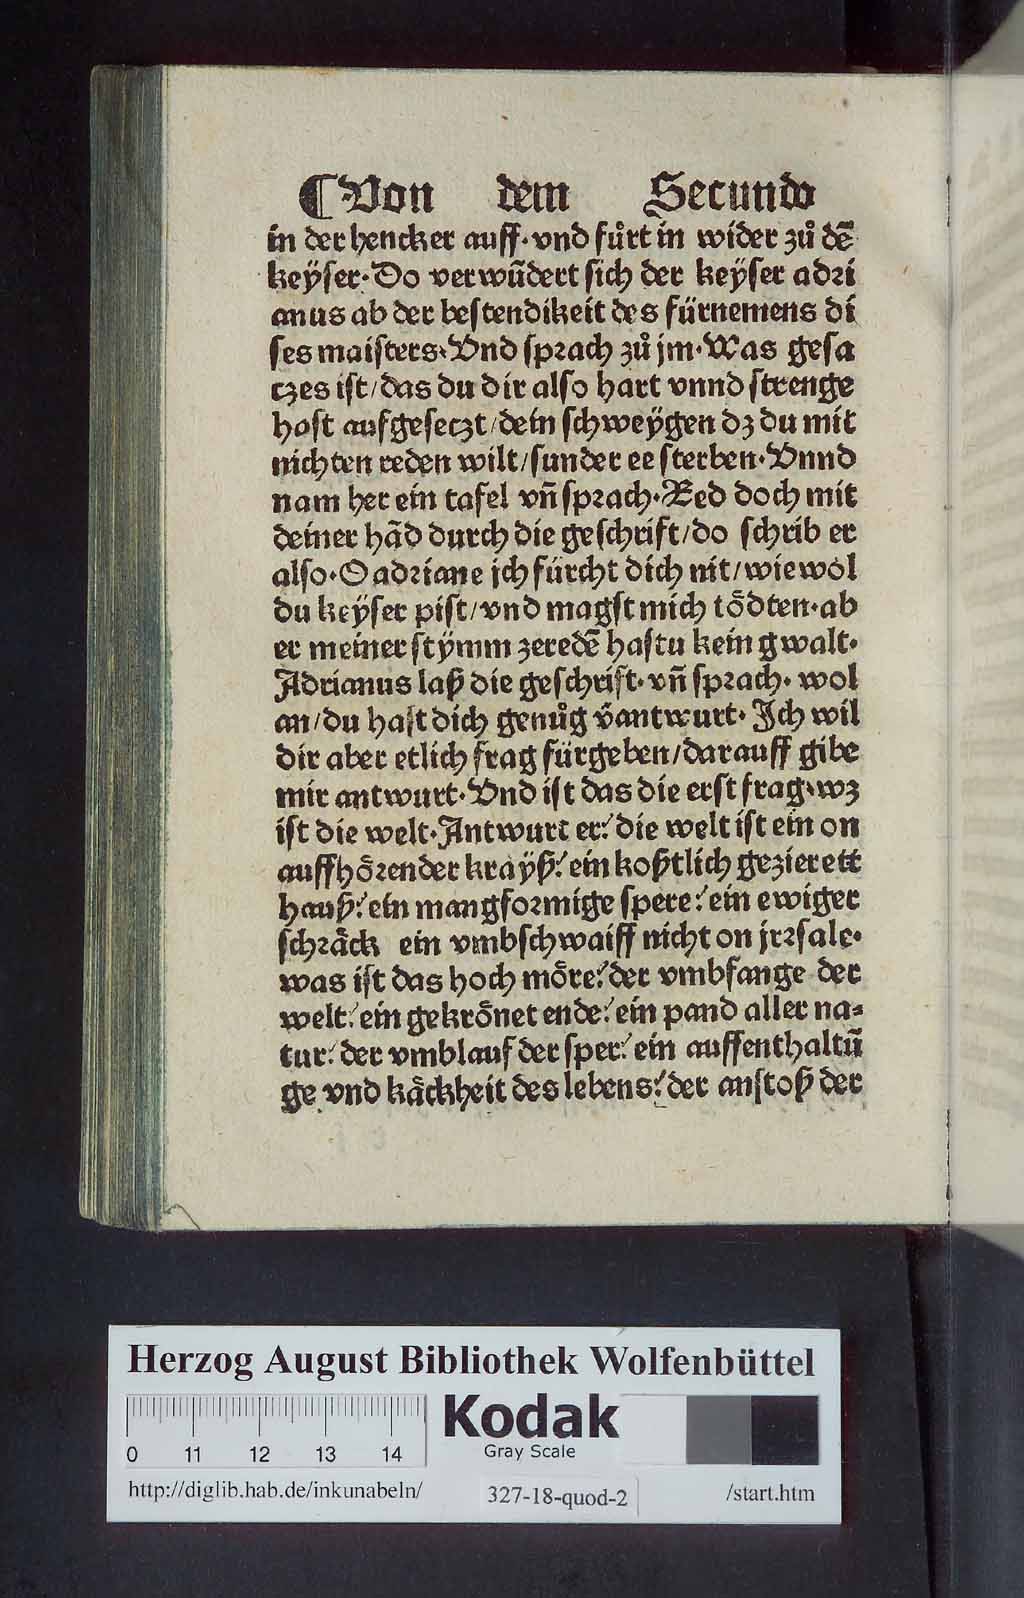 ⸿Von dem Secundo
in der hencker auff·vnd fůrt in wider zů dē
keÿser·Do verwūdert sich der keÿser adri
anus ab der bestendikeit des fürnemens di
ses maisters·Vnd sprach zů jm·Was gesa
czes ist/das du dir also hart vnnd strenge
hast aufgeseczt/dein schweÿgen dz du mit
nichten reden wilt/sunder ee sterben·Vnnd
nam her ein tafel vñ sprach·Red doch mit
deiner hād durch die geschrift/do schrib er
also·O adriane jch fürcht dich nit/wiewol
du keÿser pist/vnd magst mich tödten·ab
er meiner stÿmm zeredē hastu kein gwalt·
Adrianus laß die geschrift·vñ sprach·wol
an/du hast dich genůg v̄antwurt·Ich wil
dir aber etlich frag fürgeben/darauff gibe
mir antwurt·Vnd ist das die erst frag·wz
ist die welt·Antwurt er:die welt ist ein on
auffhörender kraÿß:ein koßtlich gezierett
hauß:ein mangformige spere:ein ewiger
schräck ein vmbschwaiff nicht on jrrsale·
was ist das hoch möre:der vmbfange der
welt:ein gekrönet ende:ein pand aller na=
tur:der vmblauf der sper:ein auffenthaltū
ge vnd käckheit des lebens:der anstoß der
Herzog August Bibliothek Wolfenbüttel
Kodak
Gray Scale
0 11 12 13 14
http://diglib.hab.de/inkunabeln/ 327-18-quod-2 /start.htm